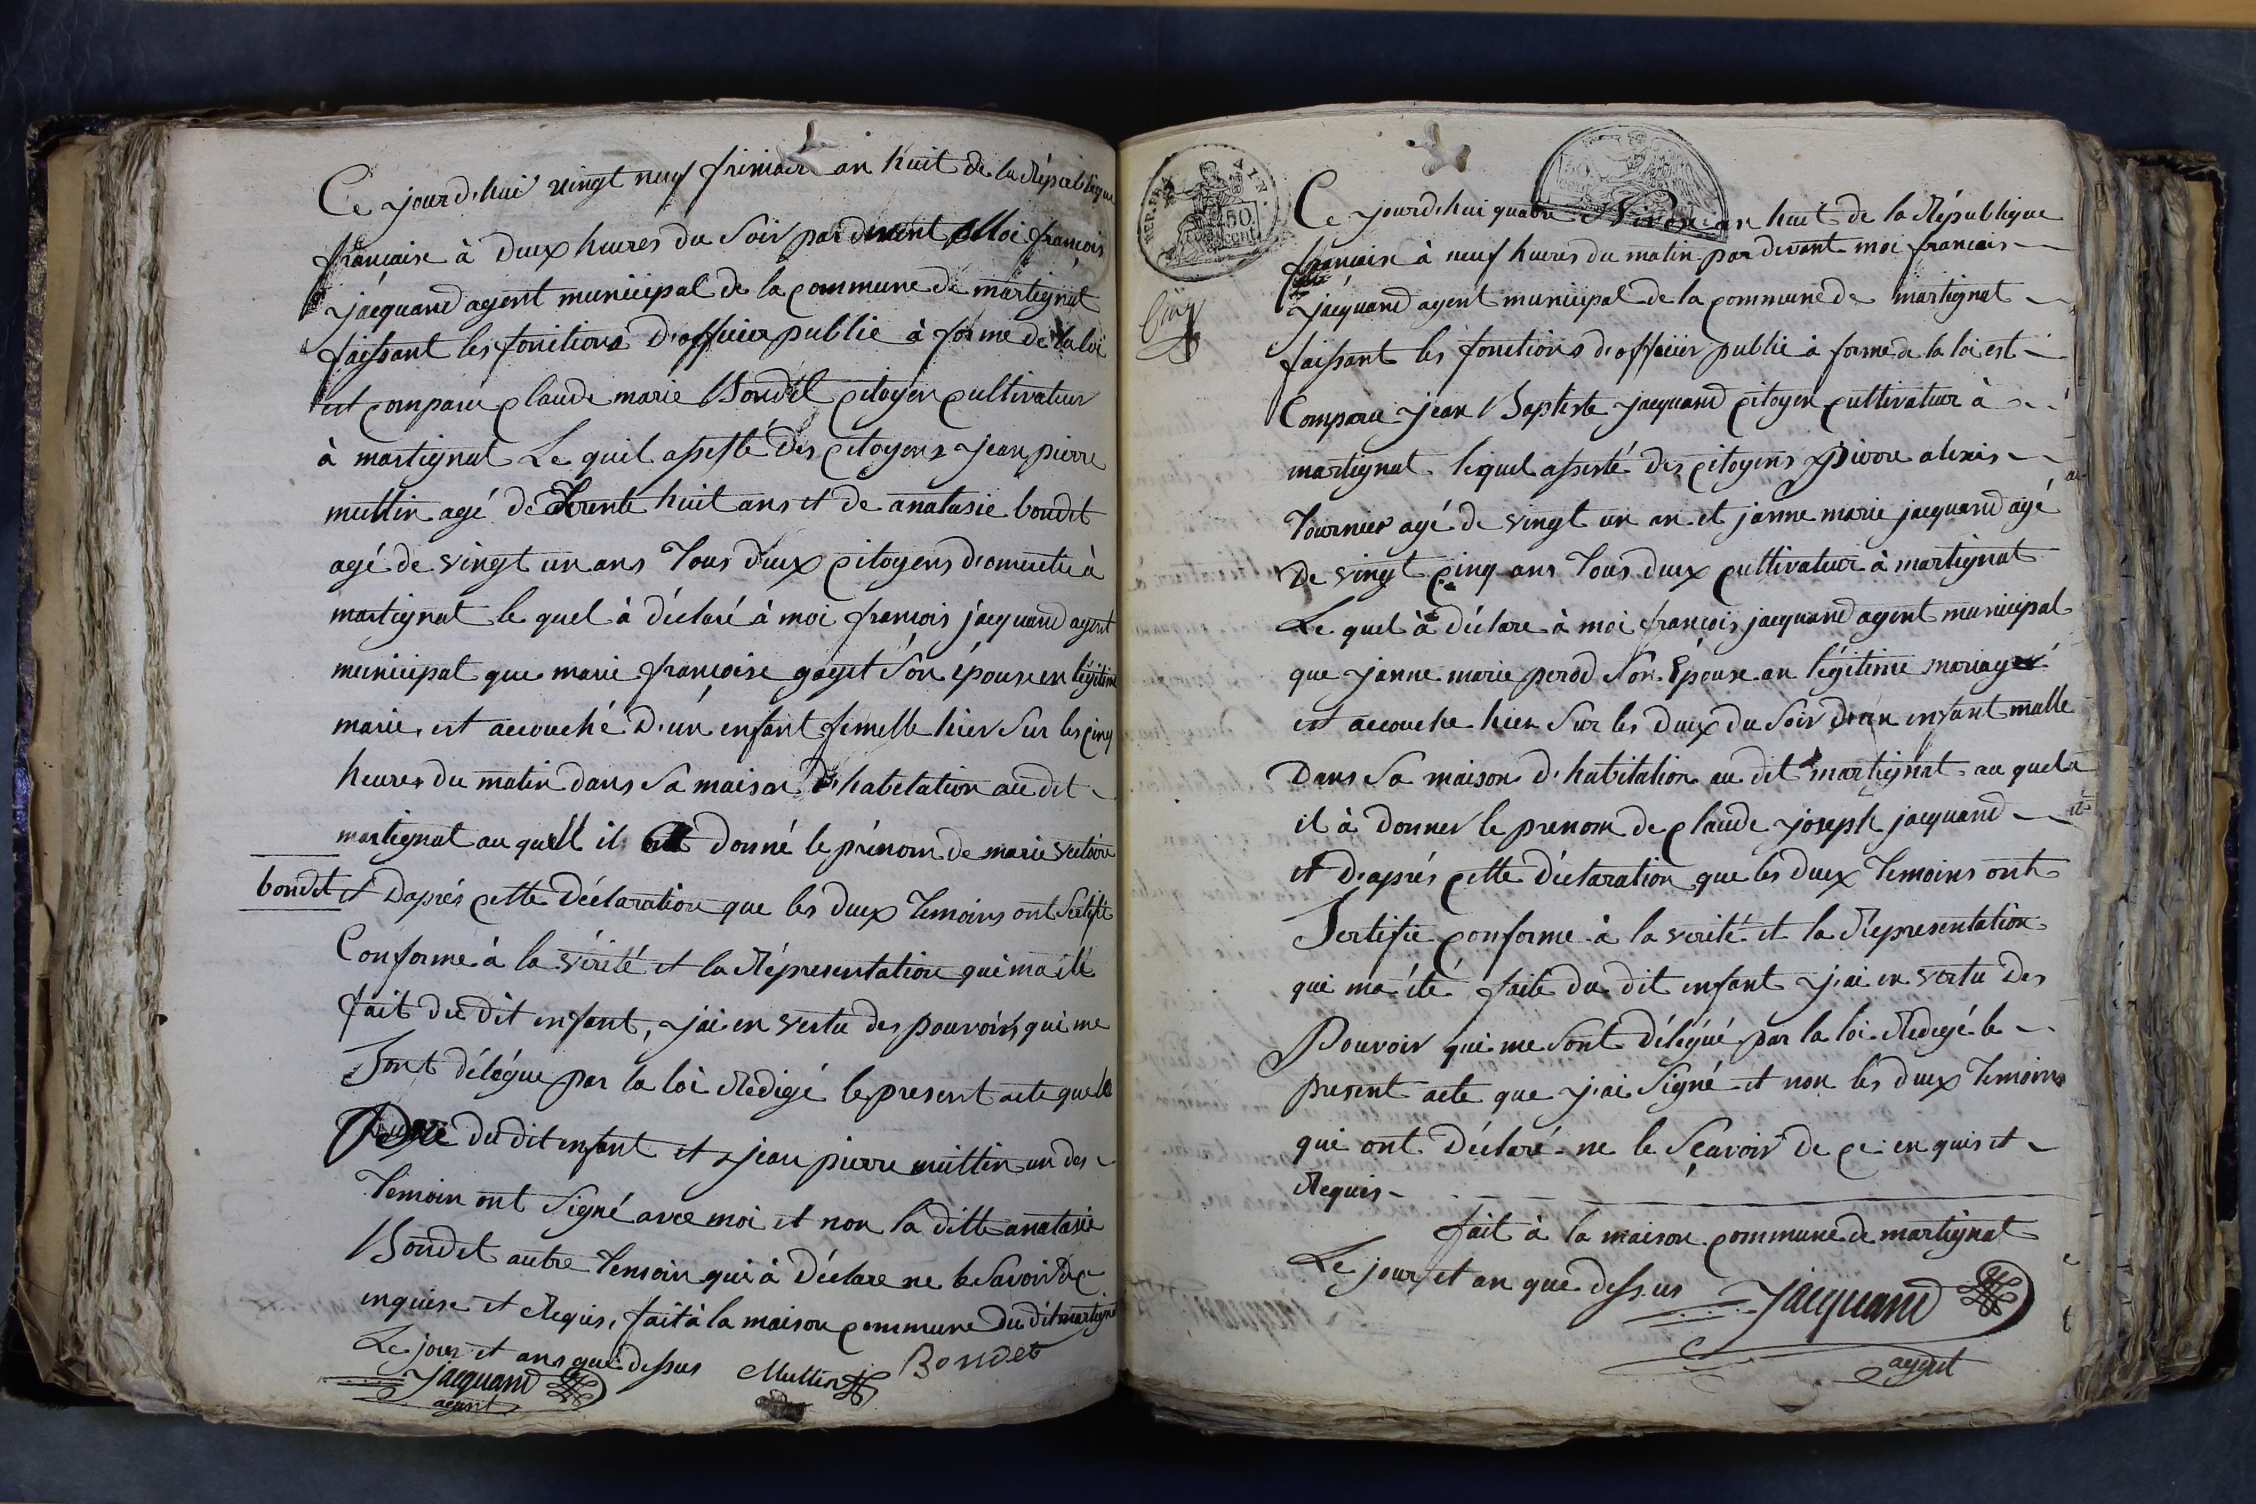 Ce jourd'hui vingt neuf frimaire an huit de la République
française à deux heures du soir par devent Moi françois
jacquand agent municipal de la commune de martignat
faissant les fonctions d'officier public à forme de la loi
est comparu claude marie Bondet citoyen cultivateur
à martignat Le quel assisté des citoyens jean pierre
muttin agé de trente huit ans et de anatasie bondet
agé de vingt un ans tous deux citoyens domicilié à
martignat le quel à déclaré à moi françois jacquand agent
municipal que marie françoise gayet son épouse en légitime
marie, est accouché d'un enfant femelle hier sur les cinq
heures du matin dans sa maison d'habitation au dit
martignat au quell il donné le prénom de marie victoire
bondet et d'après cette déclaration que les deux temoins ont sertifié
Conforme à la vérité et la Répresentation qui ma été
fait du dit enfant, j'ai en vertu des pouvoirs qui me
sont délégue par la loi Redigé le present acte que le
Père du dit enfant et jean pierre muttin un des
temoin ont signé avec moi et non la ditte anatasie
Bondet autre temoin qui à déclare ne le savoir de ce
inquise et Requis, fait à la maison commune du dit martignat
Le jour et ans que dessus Muttin Bondet
jacquand
agent
REP. FRA.
50
cent
Cinq
Ce jourd'hui quatre Nivose an huit de la République
française à neuf heures du matin par devant moi françois
jacquand agent municipal de la commune de martignat
faissant les fonctions d'officier public à forme de la loi est
Comparu jean Baptiste jacquand citoyen cultivateur à
martignat lequel assisté des citoyens Pierre alexis
tournier agé de vingt un an et janne marie jacquand agé
de vingt cinq ans tous deux cultivateur à martignat
Le quel à déclare à moi françois jacquand agent municipal
que janne marie perod son Epouse an légitime mariage
est accouche hier sur les deux du soir d'un enfant malle
Dans sa maison d'habitation au dit martignat au quel
il à donner le prenom de claude joseph jacquand
et d'après cette déclaration que les deux temoins ont
Sertifie conforme à la verité et la Représentation
qui ma été faite du dit enfant j'ai en vertu des
Pouvoir qui me sont délégué par la loi Redigé le
present acte que j'ai signé et non les deux temoins
qui ont déclaré ne le sçavoir de ce en quis et
Requis
fait à la maison commune de martignat
Le jour et an que dessus jacquand
agent